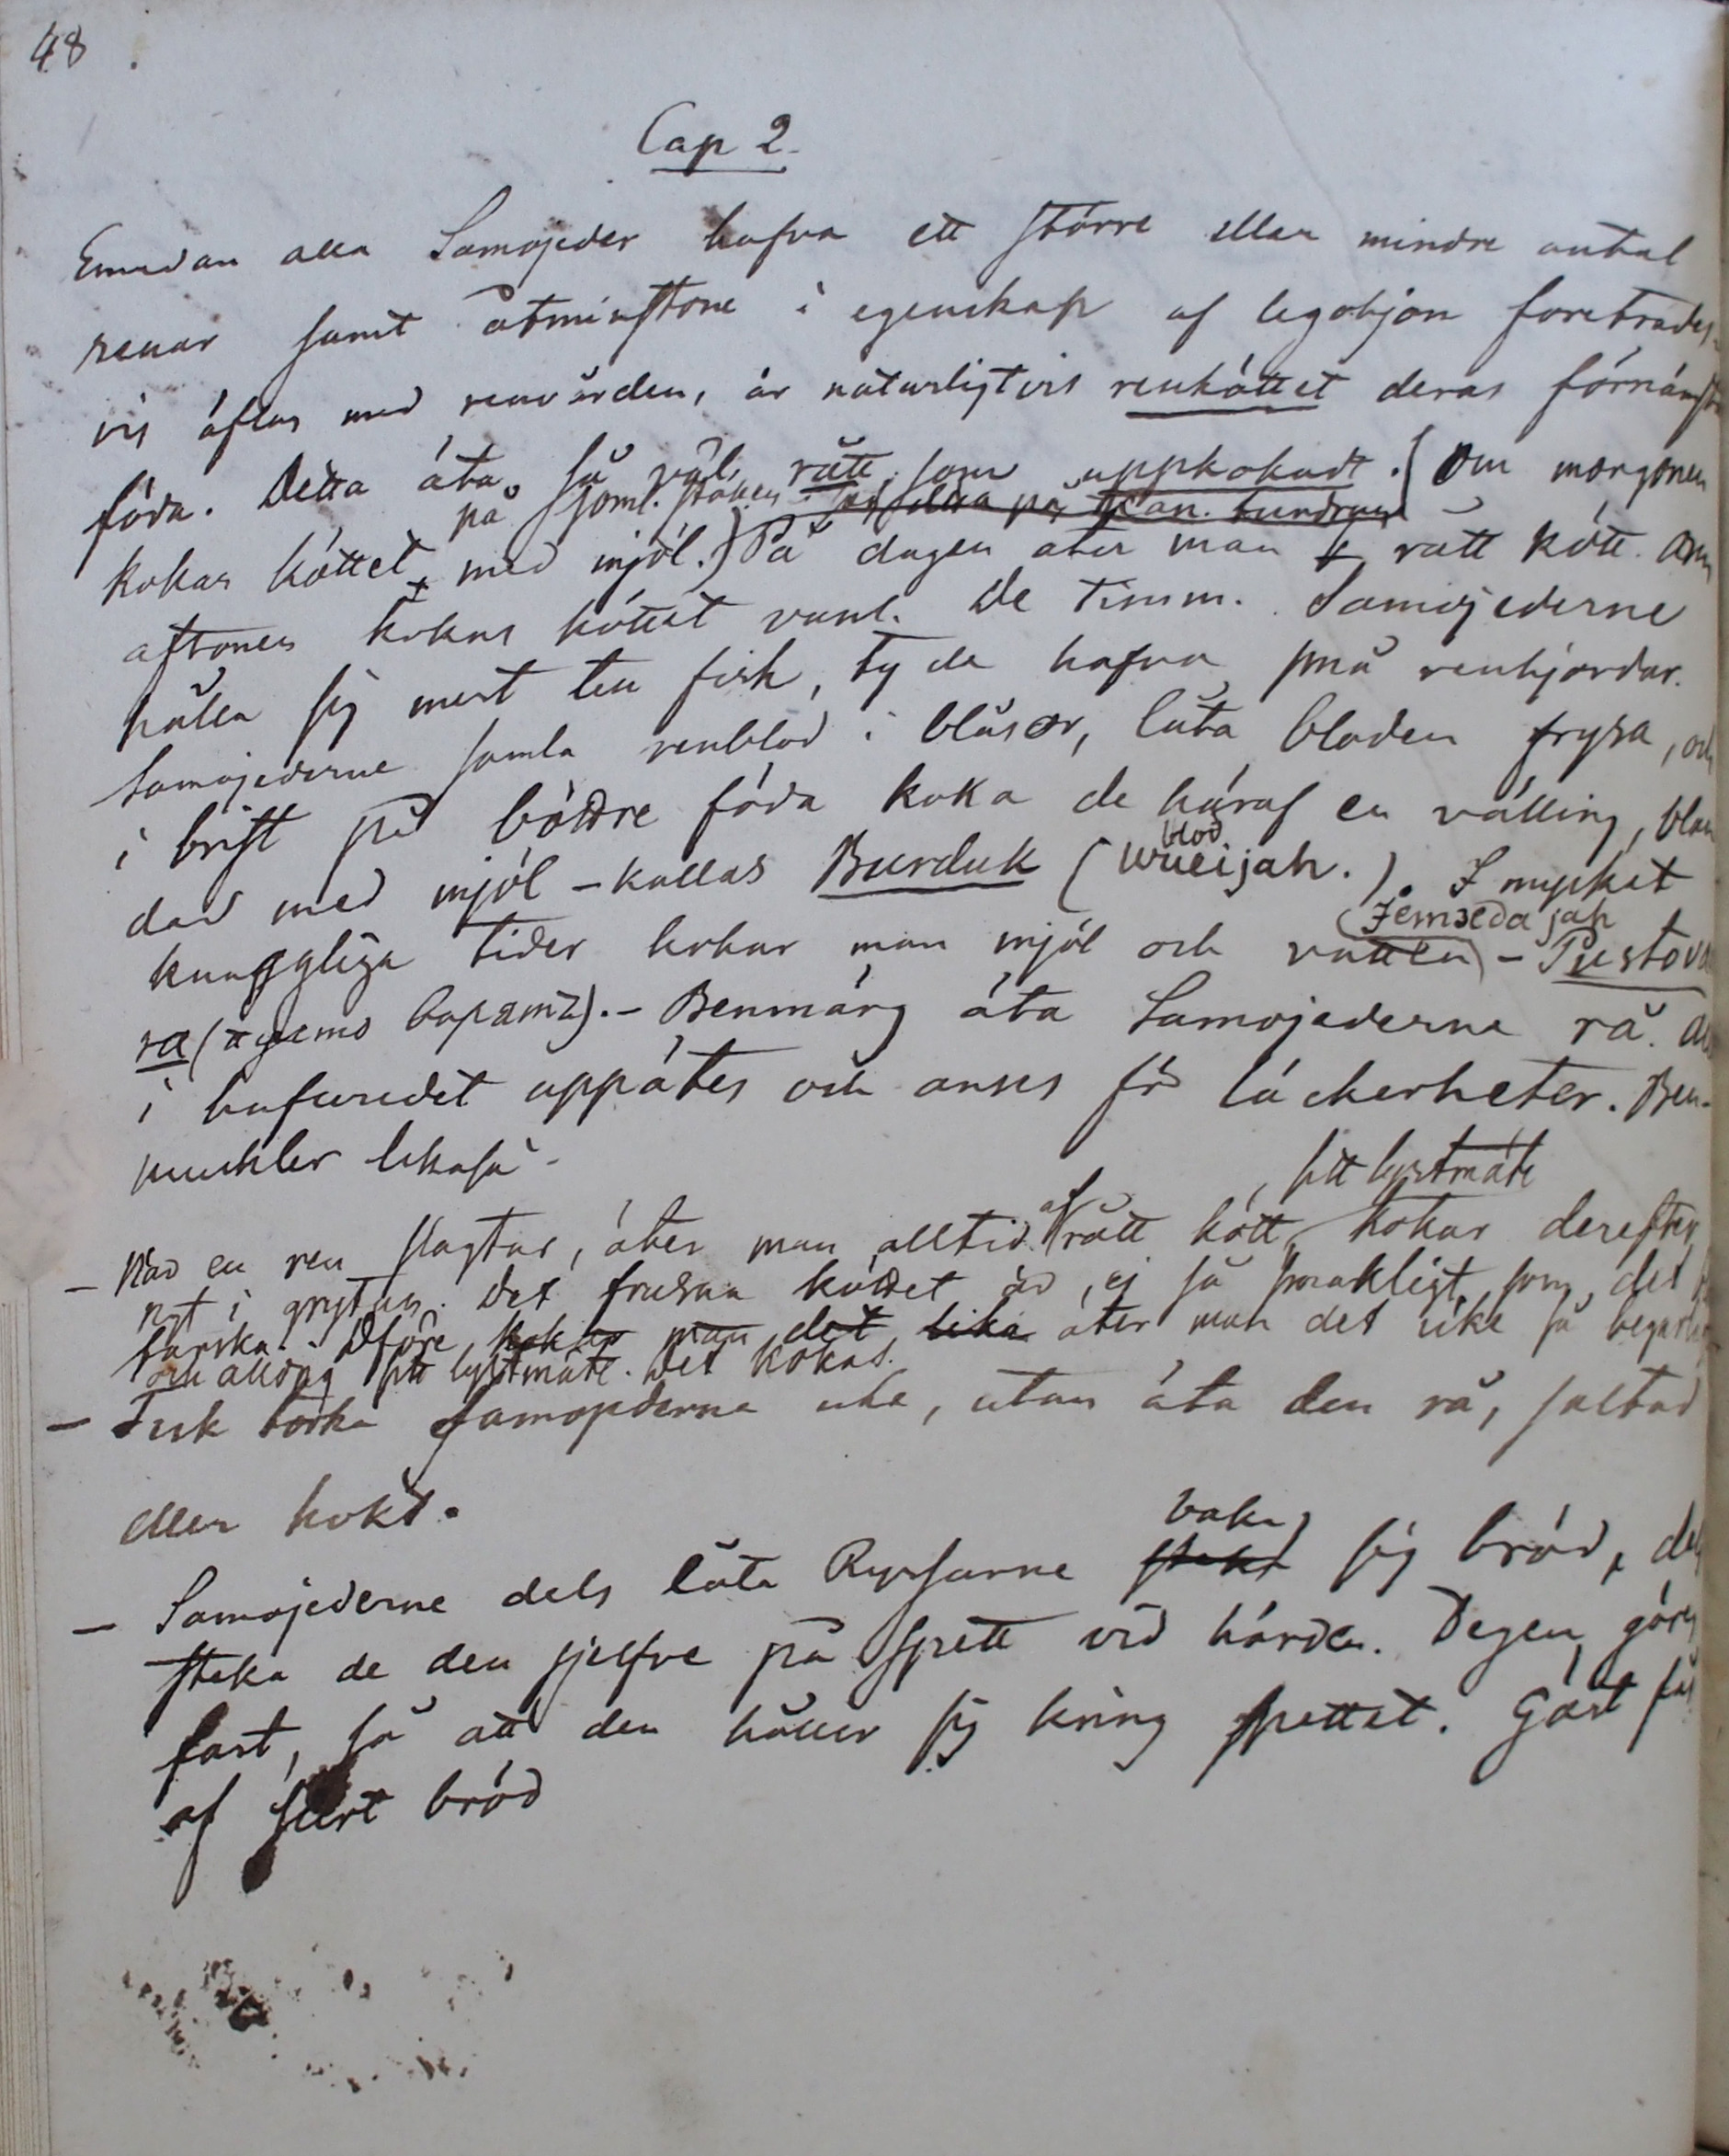 48
Cap 2.
Emedan alla Samojeder hafva ett större eller mindre antal
renar samt åtminstone i egenskap af legohjon företrädes-
vis äflas med renvården, är naturligtvis renköttet deras förnämsta
föda. Detta äta så väl rått, som uppkokadt. (Om morgonen
på soml. ställen på Kan. tundran
kokas köttet med mjöl.) På dagen äter man rått kött. Om
aftonen kokas köttet vanl. De Timm. Samojederne
hålla sig mest till fisk, ty de hafva små renhjordar.
Samojederne samla renblod i blåsor, låta bloden frysa, och
i brist på bättre föda koka de häraf en välling, blan
dad med mjöl - kallas Burduk (Wueijah.). I mycket
blod
knaggliga tider kokar man mjöl och vatten - Pustova
(Jemzeda jah
ra (пусто варатъ). - Benmärg äta Samojederne rå.
i hufvudet uppätes och anses för läckerheter. Ben-
muskler likaså -
sitt lystmäte
- När en ren slagtas, äter man alltid af rått kött, kokar derefter
nst i grytan. Det frusna köttet är ej så smakligt, som det
färska. Dföre kokas man det lika äter man det icke så begärligt
och aldrig sitt lystmäte. Det kokas.
- Fisk torka Samojederne icke, utan äta den rå, saltad
eller kokt.
baka
- Samojederne dels låta Ryssarne steka sig bröd, dels
steka de den sjelfve på spett vid härden. Degen göres
fast, så att den håller sig kring spettet. Gäst fås
af surt bröd